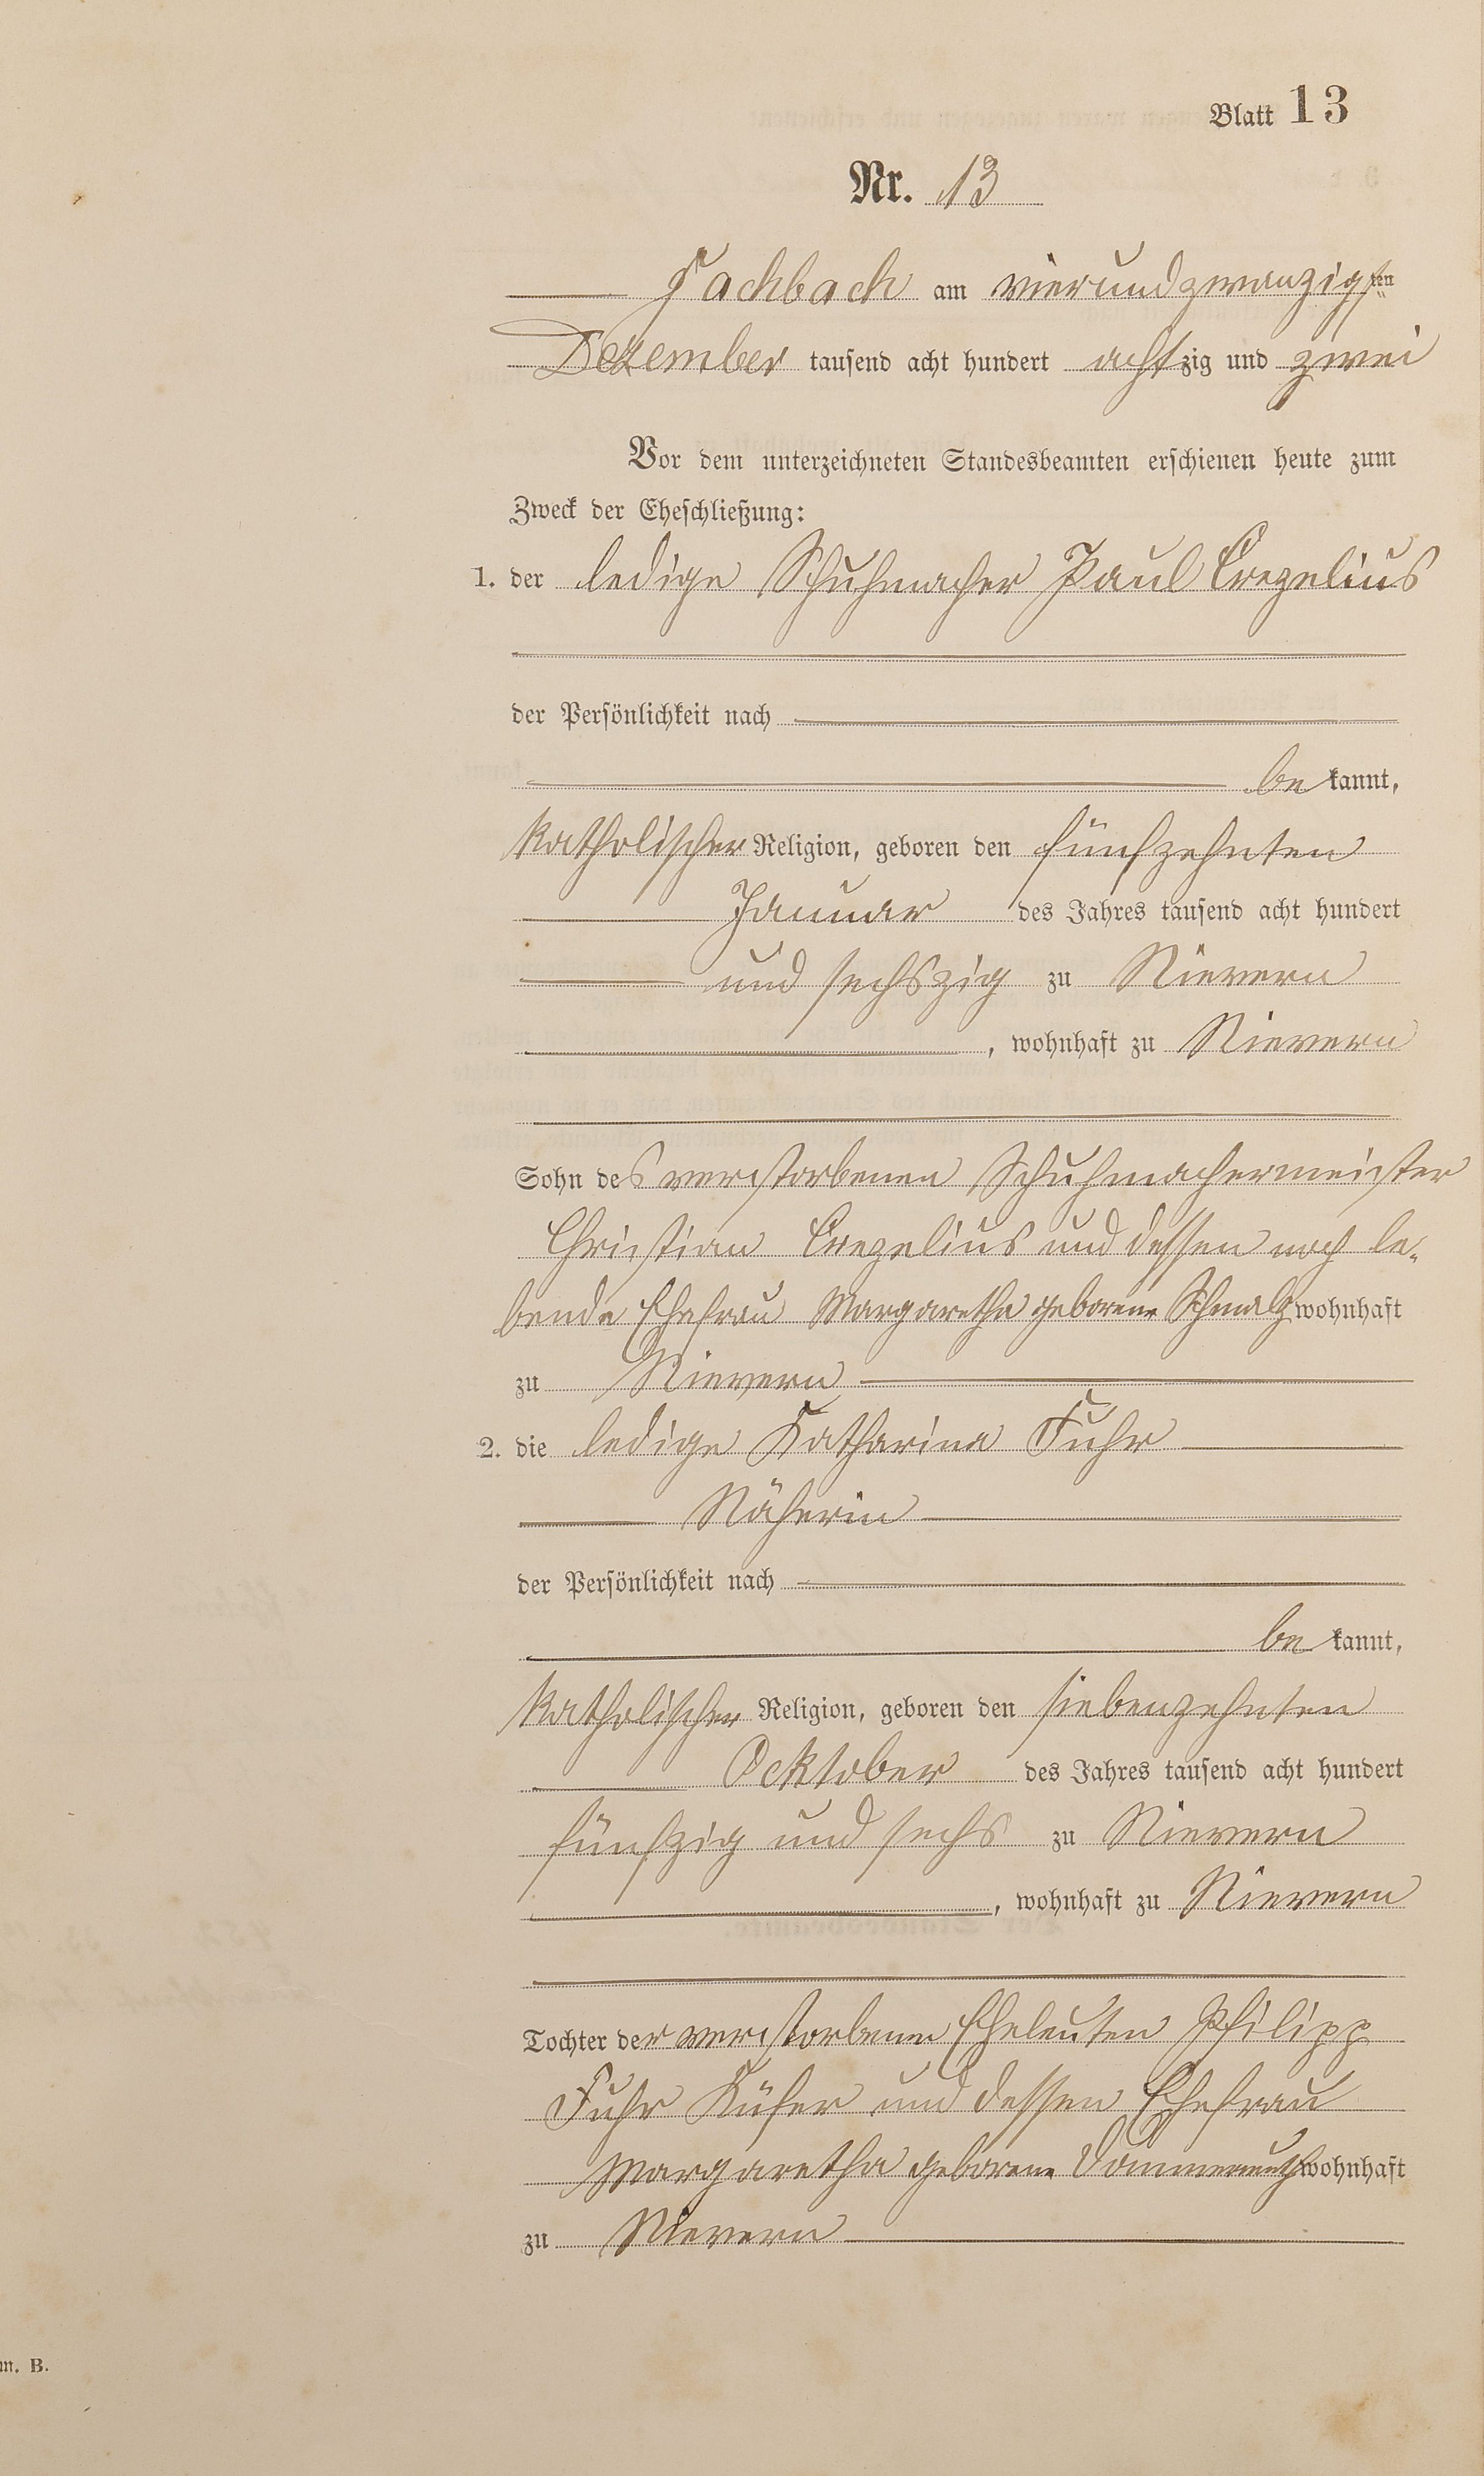 Blatt 13
Nr. 13
Fachbach am vierundzwanzigsten
Dezember tausend acht hundert achtzig und zwei
Vor dem unterzeichneten Standesbeamten erschienen heute zum
Zweck der Eheschließung:
1. der ledige Schuhmacher Paul Crezelius
der Persönlichkeit nach
be kannt,
katholischer Religion, geboren den fünfzehnten
Januar des Jahres tausend acht hundert
und sechszig zu Nievern
, wohnhaft zu Nievern
Sohn des verstorbenen Schuhmachermeister
Christian Crezelius und dessen noch le-
bende Ehefrau Margaretha geborene Schmalz wohnhaft
zu Nievern
2. die ledige Katharina Fuhr
Näherin
der Persönlichkeit nach
be kannt,
katholischer Religion, geboren den siebenzehnten
Ocktober des Jahres tausend acht hundert
fünfzig und sechs zu Nievern
, wohnhaft zu Nievern
Tochter der verstorbenen Eheleuten Philipp
Fuhr Küfer und dessen Ehefrau
Margaretha geborene wohnhaft
zu Nievern
m. B.